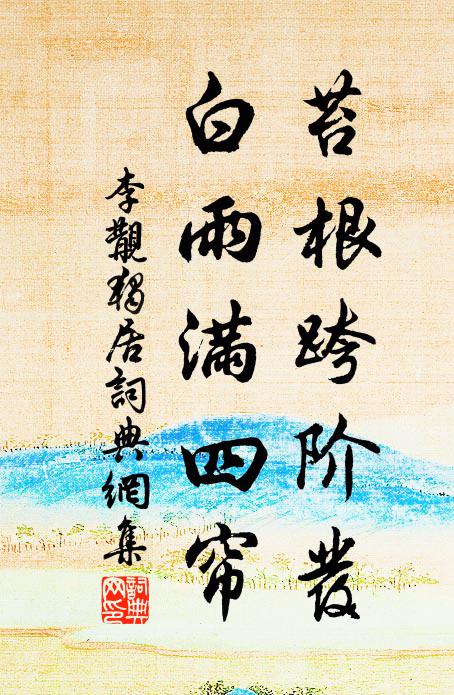 苔根跨阶發
白雨满四帘
李觏獨居詞典網集
詞典網印